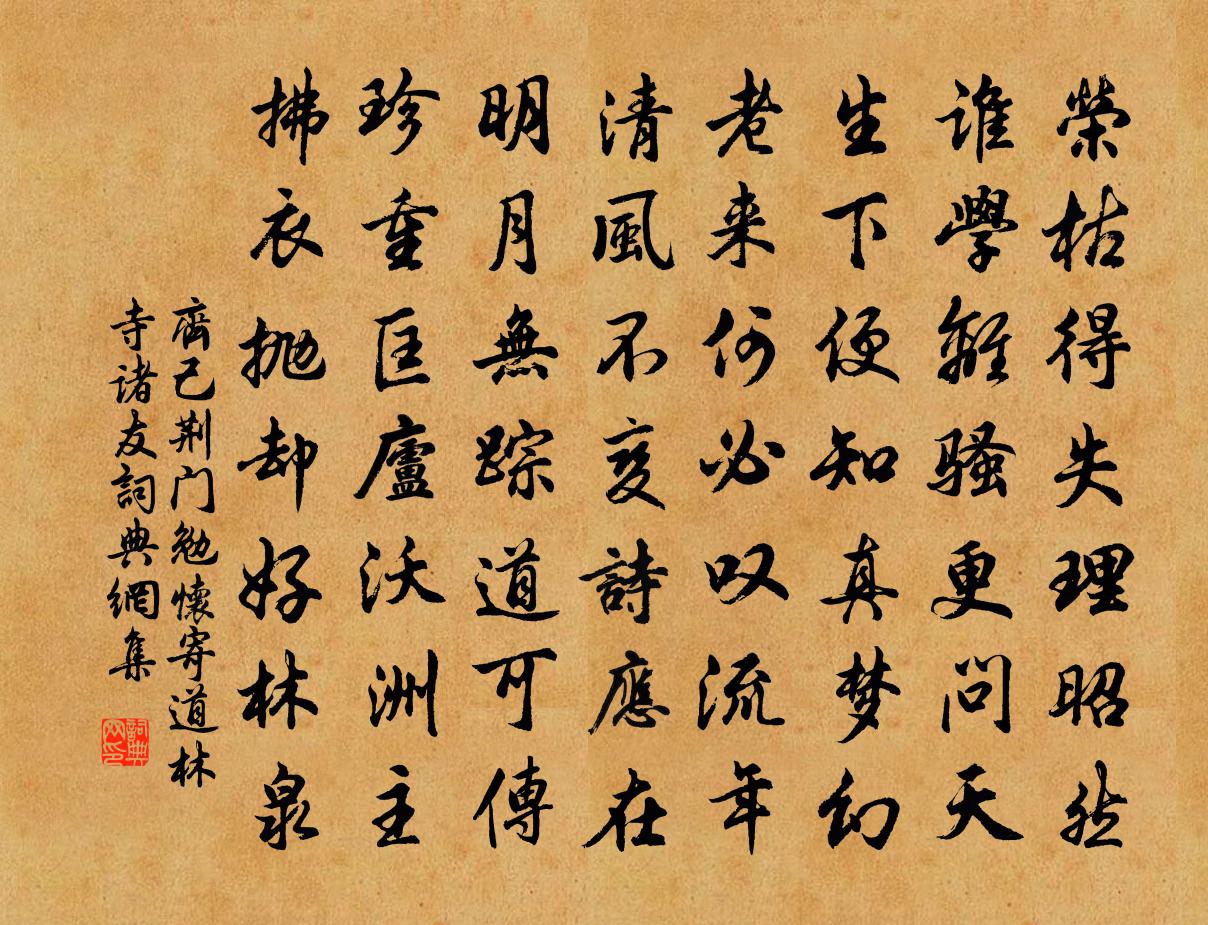 榮枯得失理昭然
誰學離騷更問天
生下便知真梦幻
老来何必叹流年
清風不变詩應在
明月無踪道可傳
珍重匡廬沃洲主
拂衣抛却好林泉
齊己荆门勉懷寄道林
寺诸友詞典網集
詞典
网印